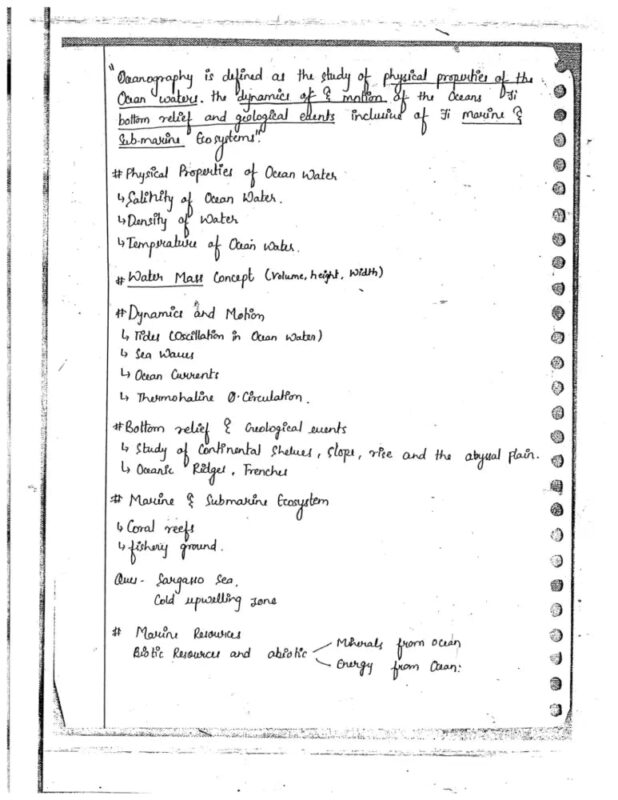 "Oceanography is defined as the study of physical properties of the
Ocean waters. the dynamics of & motion of the Oceans Ti
bottom relief and geological events inclusive of Ti marine &
Submarine Ecosystems".
# Physical Properties of Ocean Water
↳ Salinity of Ocean Water.
↳ Density of Water
↳ Temperature of Ocean Water.
# Water Mass Concept (Volume, height, Width)
# Dynamics and Motion
↳ Tides (Oscillation in Ocean Water)
↳ Sea Waves
↳ Ocean Currents
↳ Thermohaline O. Circulation.
# Bottom relief & Geological events
↳ Study of Continental Shelves, Slope, rise and the abyssal plain.
↳ Oceanic Ridges, Trenches
# Marine & Submarine Ecosystem
↳ Coral reefs
↳ fishery ground.
Ques - Sargasso Sea.
Cold upwelling zone
# Marine Resources
Biotic Resources and abiotic
Minerals from ocean
Energy from Ocean: